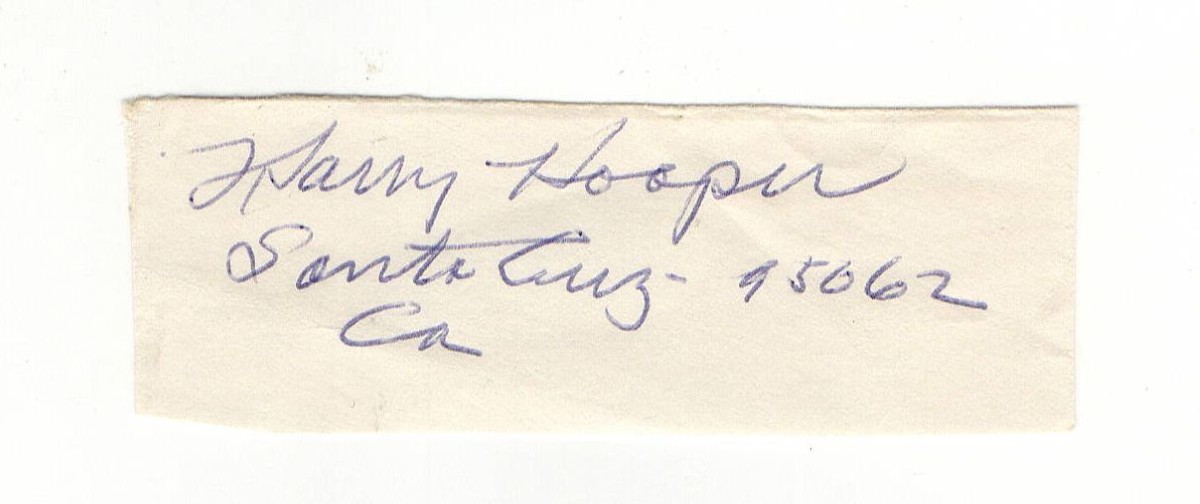 Harry Hooper
Santa Cruz - 95062
Ca